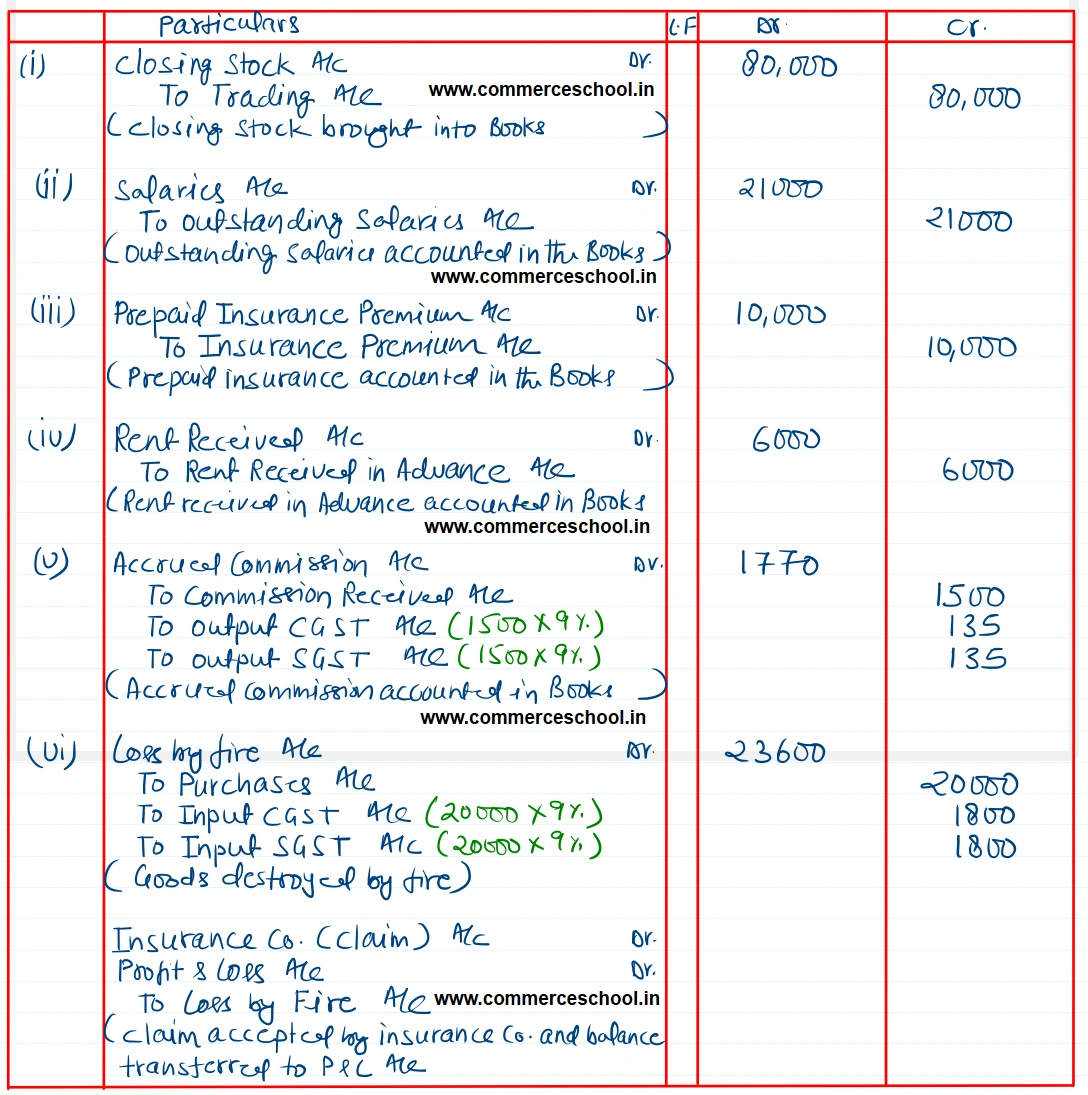 Particulars L.F Dr. Cr.
(i) Closing Stock A/c Dr. 80,000
To Trading A/c www.commerceschool.in 80,000
(Closing stock brought into Books )
(ii) Salaries A/c Dr. 21000
To Outstanding Salaries A/c 21000
(Outstanding Salaries accounted in the Books)
www.commerceschool.in
(iii) Prepaid Insurance Premium A/c Dr. 10,000
To Insurance Premium A/c 10,000
(Prepaid insurance accounted in the Books )
(iv) Rent Received A/c Dr. 6000
To Rent Received in Advance A/c 6000
(Rent received in Advance accounted in Books
www.commerceschool.in
(v) Accrued Commission A/c Dr. 1770
To Commission Received A/c 1500
To output CGST A/c (1500 x 9%.) 135
To output SGST A/c (1500 x 9%.) 135
(Accrued Commission accounted in Books )
www.commerceschool.in
(vi) Loss by fire A/c Dr. 23600
To Purchases A/c 20000
To Input CGST A/c (20000 x 9%.) 1800
To Input SGST A/c (20000 x 9%.) 1800
( Goods destroyed by fire)
Insurance Co. (Claim) A/c Dr.
Profit & Loss A/c Dr.
To Loss by Fire A/c www.commerceschool.in
(Claim accepted by insurance Co. and balance
transferred to P&L A/c